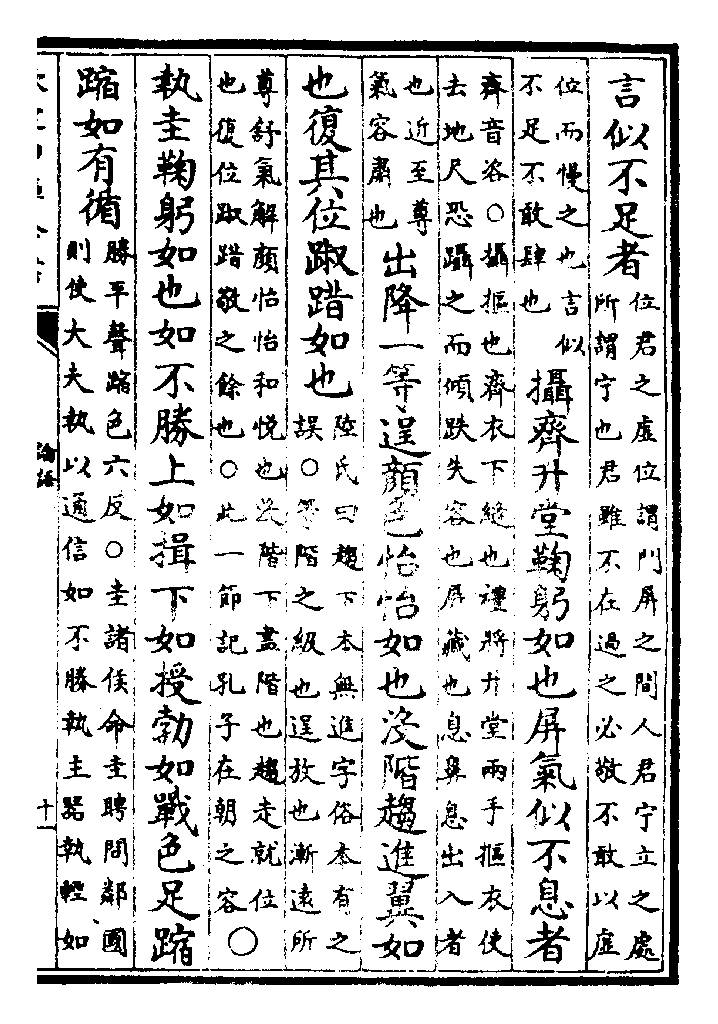 言似不足者
位君之虛位謂門屏之間人君宁立之處
所謂宁也君雖不在過之必敬不敢以虛
位而慢之也言似
不足不敢肆也
攝齊升堂鞠躬如也屏氣似不息者
齊音咨○攝摳也齊衣下縫也禮將升堂兩手摳衣使
去地尺恐躡之而傾跌失容也屏藏也息鼻息出入者
也近至尊
氣容肅也
出降一等逞顏色怡怡如也沒階趨進翼如
也復其位踧踖如也
陸氏曰趨下本無進字俗本有之
誤○等階之級也逞放也漸遠所
尊舒氣解顏怡怡和悅也沒階下盡階也趨走就位
也復位踧踖敬之餘也○此一節記孔子在朝之容
○
執圭鞠躬如也如不勝上如揖下如授勃如戰色足蹜
蹜如有循
勝平聲蹜色六反○圭諸侯命圭聘問鄰國
則使大夫執以通信如不勝執主器執輕如
論語
十